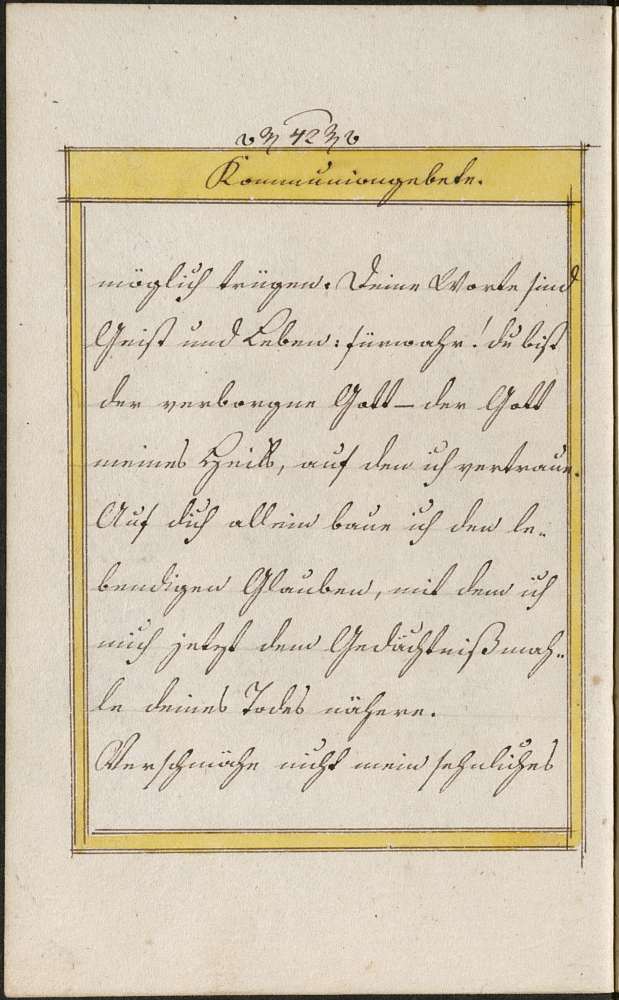 42
Kommuniongebete.
möglich trügen. Deine Worte sind
Geist und Leben: fürwahr! du bist
der verborgne Gott – der Gott
meines Heils, auf den ich vertraue.
Auf dich allein baue ich den le-
bendigen Glauben, mit dem ich
mich jetzt dem Gedächtnißmah-
le deines Todes nähere.
Verschmähe nicht mein sehnliches